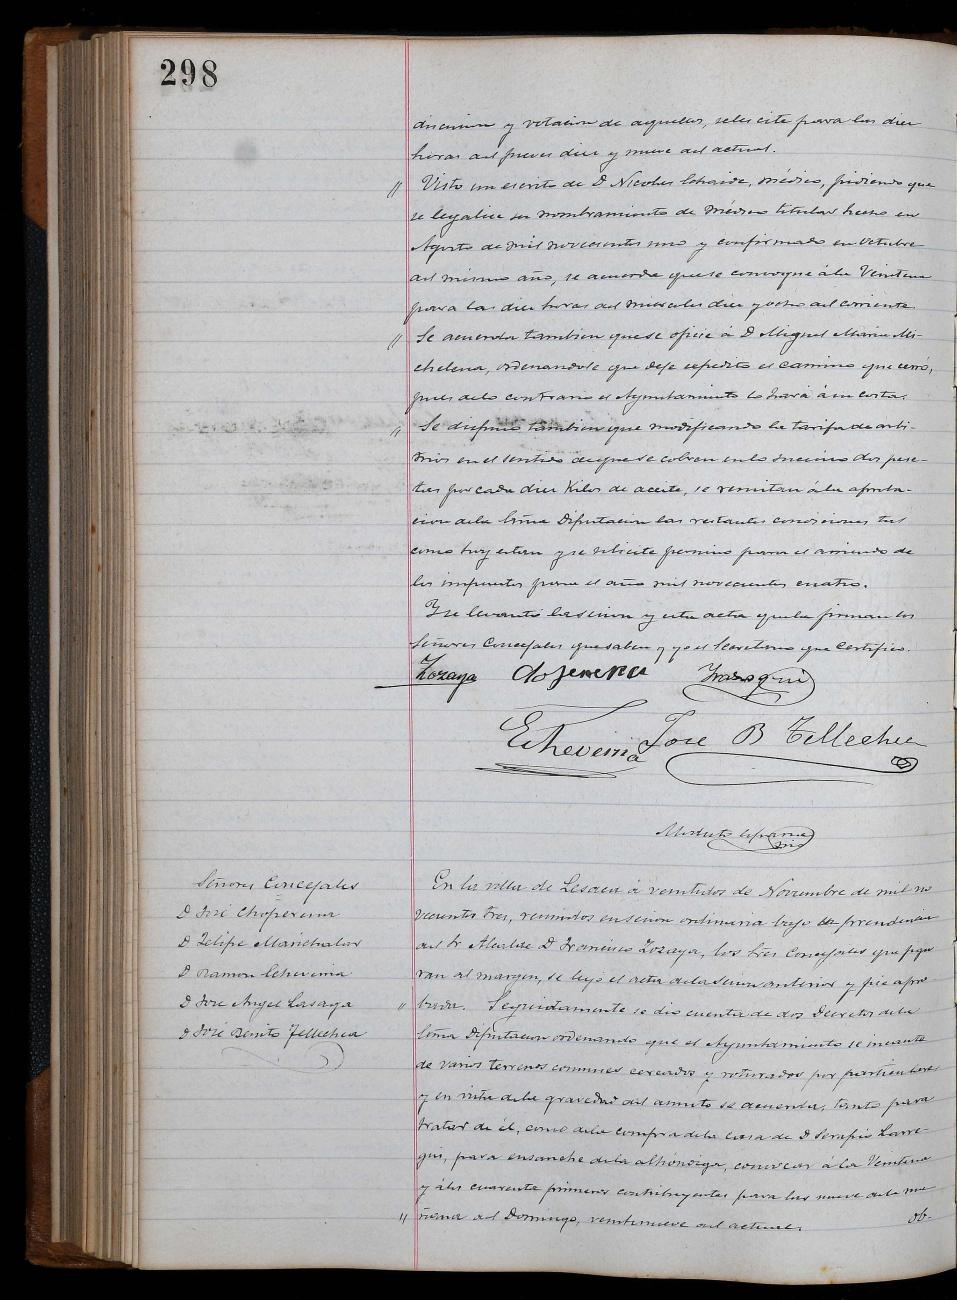 298
discusion y votacion de aquellas, se les cite para las diez
horas del jueves diez y nueve del actual.
" Visto un escrito de D Nicolas Echaide, médico, pidiendo que
se legalice su nombramiento de médico titular hecho en
Agosto de mil novecientos uno y confirmado en Octubre
del mismo año, se acuerda que se convoque á la Veintena
para las diez horas del miercoles diez y ocho del corriente
" Se acuerda tambien que se oficie á D Miguel Maria Mi-
chelena, ordenandole que deje espedito el camino que cerró,
pues de lo contrario el Ayuntamiento lo hará á su costa.
" Se dispuso tambien que modificando la tarifa de arbi-
trios en el sentido de que se cobren en lo sucesivo dos pese-
tas por cada diez Kilos de aceite, se remitan á la aproba-
cion de la Exma Diputacion las restantes condiciones tal
como hoy estan y se solicite permiso para el arriendo de
los impuestos para el año mil novecientos cuatro.
Y se levantó la sesion y esta acta que la firman los
Señores Concejales que saben y yo el Secretario que certifico.
Zozaya Choperena Irazoqui
Echeverria Jose B Tellechea
Modesto
Señores Concejales
D José Choperena
D Felipe Marichalar
D Ramon Echeverria
D Jose Angel Lasaga
D José Benito Tellechea
En la villa de Lesaca á veintidos de Noviembre de mil no
vecientos tres, reunidos en sesion ordinaria bajo la presidencia
del Sr Alcalde D Francisco Zozaya, los Sres Concejales que figu
ran al margen, se leyó el acta de la sesion anterior y fue apro
" bada. Seguidamente se dio cuenta de dos Decretos de la
Exma Diputacion ordenando que el Ayuntamiento se incaute
de varios terrenos comunes cercados y roturados por particulares
y en vista de la gravedad del asunto se acuerda, tanto para
tratar de él, como de la compra de la casa de D Serafin Larre-
gui, para ensanche de la alhóndiga, convocar á la Veintena
y á los cuarenta primeros contribuyentes para las nueve de la ma
" ñana del Domingo, veintinueve del actual. ob-